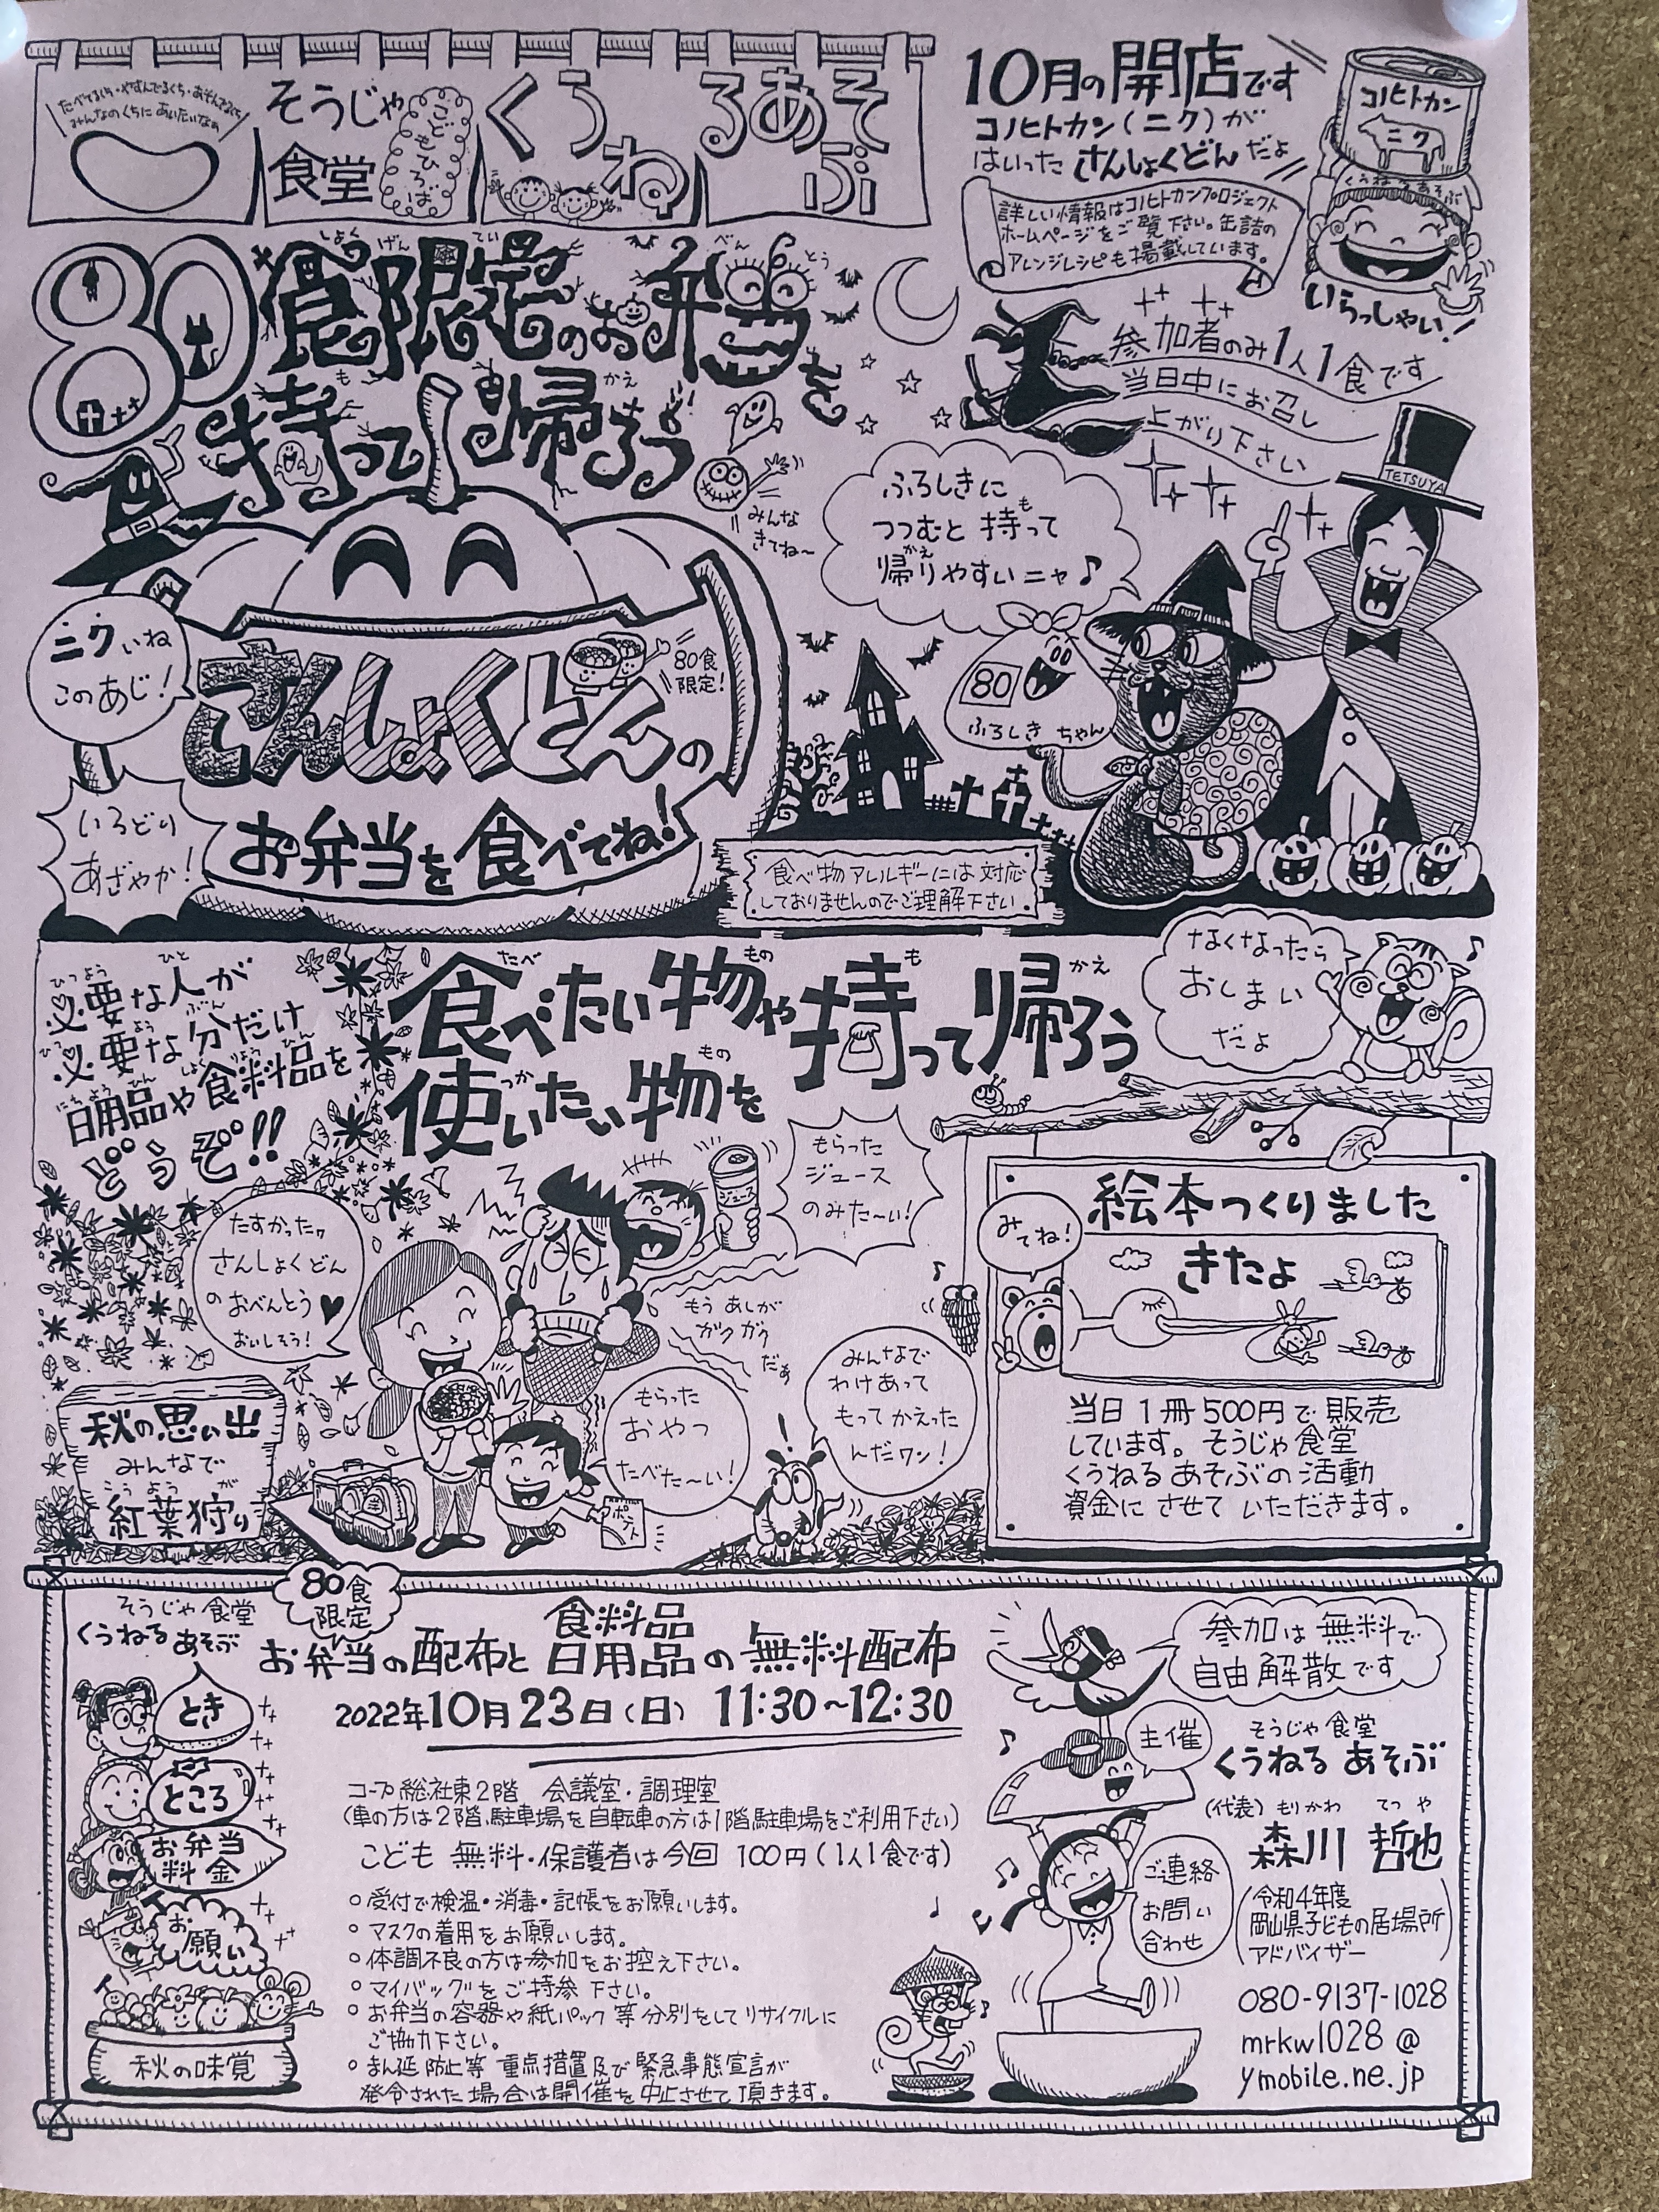 たべてるくち・やすんでるくち・あそんでるくち
みんなのくちにあいたいなぁ
そうじゃ
食堂
こどもひろば
くうねるあそぶ
10月の開店です
コノヒトカン(ニク)が
はいった さんしょくどんだよ
詳しい情報はコノヒトカンプロジェクト
ホームページをご覧下さい。缶詰の
アレンジレシピも掲載しています。
コノヒトカン
ニク
くうねるあそぶ
いらっしゃい!
80食限定のお弁当を
しょく げん てい べん とう
持って帰ろう
も かえ
みんな
きてね〜
参加者のみ1人1食です
当日中にお召し
上がり下さい
TETSUYA
ふろしきに
つつむと持って
も
帰りやすいニャ♪
かえ
80
ふろしきちゃん
ニクいね
このあじ!
さんしょくどんの
80食
限定!
お弁当を食べてね!
いろどり
あざやか!
食べ物アレルギーには対応
しておりませんのでご理解下さい
必要な人が
ひつよう ひと
必要な分だけ
ひつ よう ぶん
日用品や食料品を
にち よう ひん しょく りょう ひん
どうぞ!!
食べたい物や
たべ もの
使いたい物を
つか もの
持って帰ろう
も かえ
なくなったら
おしまい
だよ
たすかったワ
さんしょくどん
のおべんとう♥
おいしそう!
ジュース
もらった
ジュース
のみた〜い!
もう あしが
ガクガク
だぁ
もらった
おやつ
たべた〜い!
ポテト
みんなで
わけあって
もってかえった
んだワン!
秋の思い出
みんなで
こう よう が
紅葉狩り
絵本つくりました
みてね!
きたよ
当日1冊500円で販売
しています。そうじゃ食堂
くうねるあそぶの活動
資金にさせていただきます。
そうじゃ食堂
くうねるあそぶ
80食
限定
お弁当の配布と食料品日用品の無料配布
2022年10月23日(日) 11:30~12:30
とき
ところ
コープ総社東2階 会議室・調理室
(車の方は2階駐車場を自転車の方は1階駐車場をご利用下さい)
お弁当
料金
こども 無料・保護者は今回 100円(1人1食です)
お願い
○受付で検温・消毒・記帳をお願いします。
○マスクの着用をお願いします。
○体調不良の方は参加をお控え下さい。
○マイバッグをご持参下さい。
○お弁当の容器や紙パック等分別をしてリサイクルに
ご協力下さい。
○まん延防止等重点措置及び緊急事態宣言が
発令された場合は開催を中止させて頂きます。
秋の味覚
参加は無料で
自由解散です
主催
そうじゃ食堂
くうねる あそぶ
(代表) もりかわ てつや
森川 哲也
ご連絡
お問い
合わせ
(令和4年度
岡山県子どもの居場所
アドバイザー)
080-9137-1028
mrkw1028@
ymobile.ne.jp